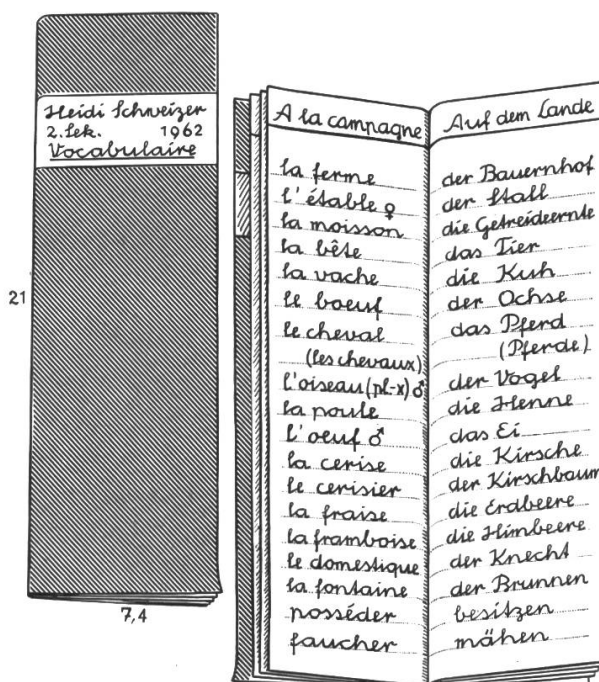 Heidi Schweizer
2. Sek. 1962
Vocabulaire
21
7,4
A la campagne
la ferme
l'étable ♀
la moisson
la bête
la vache
le boeuf
le cheval
(les chevaux)
l'oiseau (pl.-x) ♂
la poule
l'oeuf ♂
la cerise
le cerisier
la fraise
la framboise
le domestique
la fontaine
posséder
faucher
Auf dem Lande
der Bauernhof
der Stall
die Getreideernte
das Tier
die Kuh
der Ochse
das Pferd
(Pferde)
der Vogel
die Henne
das Ei
die Kirsche
der Kirschbaum
die Erdbeere
die Himbeere
der Knecht
der Brunnen
besitzen
mähen